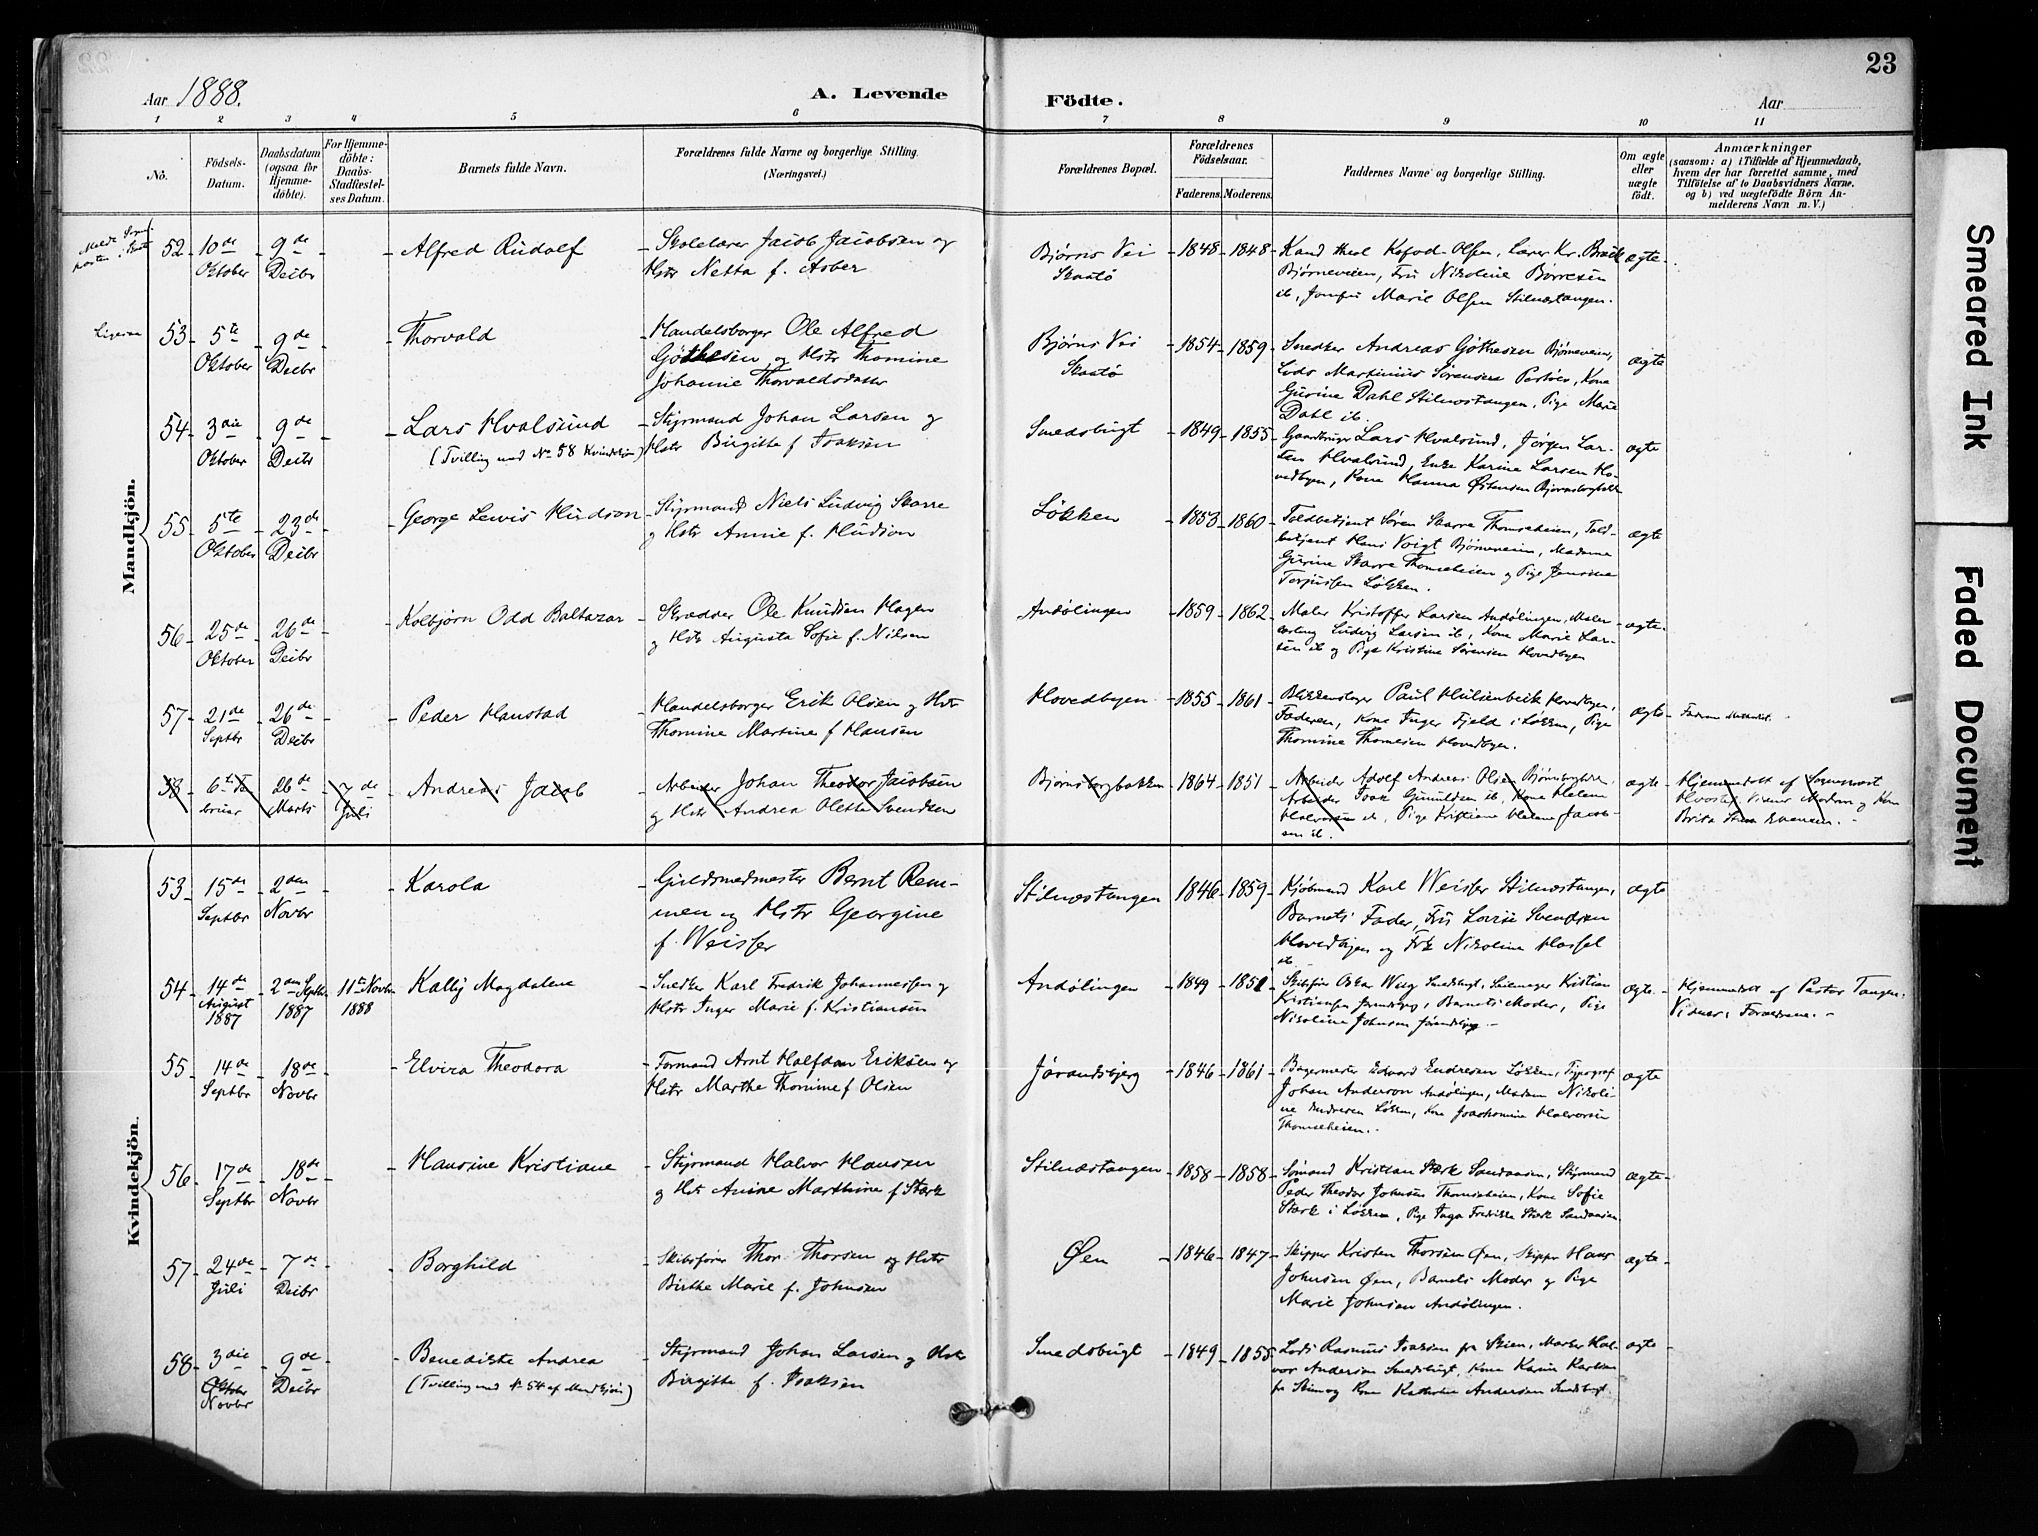 23
Aar 1888.
A. Levende
Födte.
Aar
1 2 3 4 5 6 7 8 9 10 11
No.
Födsels-
Datum.
Daabsdatum
(ogsaa for
Hjemme-
döbte).
For Hjemme-
döbte:
Daabs-
Stadfæstel-
ses Datum.
Barnets fulde Navn.
Forældrenes fulde Navne og borgerlige Stilling.
(Næringsvei.)
Forældrenes Bopæl.
Forældrenes
Födselsaar.
Faderens.
Moderens.
Faddernes Navne og borgerlige Stilling.
Om ægte
eller
uægte
födt.
Anmærkninger
(saasom: a) i Tilfælde af Hjemmedaab,
hvem der har forrettet samme, med
Tilföielse af to Daabsvidners Navne,
og b) ved uægtefödte Börn An-
melderens Navn m. V.)
Mandkjön.
52 10de Oktober 9de Decbr
Alfred Rudolf
Skolelærer Jacob Jacobsen og
Hstr Netta f. Asber
Bjørns Vei
Skaatø
1848 1848
Kand theol Kofod Olsen, Lærer Kr. Bræk
Bjørneveien, Fru Nikoline Borresen
ib, Jomfru Marie Olsen Stilnæstangen.
ægte
53 5te Oktober 9de Decbr
Thorvald
Handelsborger Ole Alfred
Gøthesen og Hstr Thomine
Johanne Thorvaldsdatter
Bjørns Vei
Skaatø
1854 1859
Snedker Andreas Gøthesen Bjørneveien,
Lods Martinius Sørensen, Kone
Gurine Dahl Stilnæstangen, Pige Marie
Dahl ib.
ægte
54 3die Oktober 9de Decbr
Lars Hvalsund
(Tvilling med No 58 Kvindekjøn)
Styrmand Johan Larsen og
Hstr Birgitte f Isaksen
Smedsbugt
1849 1855
Gaardbruger Lars Hvalsund, Jørgen Lar-
sen Hvalsund, Enke Karine Larsen Ho-
vedbyen, Kone Hanna Østensen Bjørnsbergbakken
ægte
55 5te Oktober 23de Decbr
George Lewis Hudson
Styrmand Niels Ludvig Skarre
og Hstr Annie f. Hudson
Løkken
1853 1860
Toldbetjent Søren Skarre Thomseheien, Told-
betjent Hans Voigt Bjørneveien, Madame
Gurine Skarre Thomseheien og Pige Jensine
Torjussen Løkken.
ægte
56 25de Oktober 26de Decbr
Kolbjørn Odd Baltazar
Skredder Ole Knudsen Hagen
og Hstr Augusta Sofie f. Nilsen
Andølingen
1859 1862
Maler Kristoffer Larsen Andølingen, Maler-
Ludvig Larsen ib, Kone Marie Lar-
sen ib og Pige Kristine Sørensen Hovedbyen
ægte
57 21de Septbr 26de Decbr
Peder Haustad
Handelsborger Erik Olsen og Hstr
Thomine Martine f Hansen
Hovedbyen
1855 1861
Blikkenslager Paul Hulsenbeck Hovedbyen,
Faderen, Kone Inger Fjeld i Løkken, Pige
Thomine Thomesen Hovedbyen.
ægte
58 6te Februar 26de Marts 7de Juli
Andreas Jacob
Arbeider Johan Theodor Jacobsen
og Hstr Andrea Olette Svendsen
Bjørnsbergbakken
1864 1851
Arbeider Adolf Andreas Olsen Bjørnsbergbakken,
Arbeider Isak Gunuldsen ib, Kone Helene
Halvorsen ib, Pige Kristiane Helene Jacob-
sen ib.
ægte
Hjemmedøbt af Sognepræst
Vidner Moderen og Kone
Brita Evensen.
Kvindekjön.
53 15de Septbr 2den Novbr
Karola
Guldsmedmester Bernt Rem-
men og Hstr Georgine
f. Weisser
Stilnæstangen
1846 1859
Kjøbmand Karl Weisser Stilnæstangen,
Barnets Fader, Fru Lovise Svendsen
Hovedbyen og Frk Nikoline Hassel
ib
ægte
54 14de August 1887 2den Septbr 1887 11te Novbr 1888
Kally Magdalene
Snedker Karl Fredrik Johannessen og
Hstr Inger Marie f. Kristiansen
Andølingen
1849 1851
Skipsfører Oskar Smedsbugt, Kristian
Kristiansen Jørandsbjerg, Barnets Moder, Pige
Nikoline Johnsen Jørandsbjerg
ægte
Hjemmedøbt af Pastor Tangen.
Vidner: Forældrene.
55 14de Septbr 18de Novbr
Elvira Theodora
Formand Arnt Halfdan Eriksen og
Hstr Marthe Thomine f Olsen
Jørandsbjerg
1846 1861
Bagermester Edvard Endresen Løkken, Typograf
Johan Anderson Andølingen, Madam Nikoli-
ne Endresen Løkken, Kone Joachomine Halvorsen
Thomseheien.
ægte
56 17de Septbr 18de Novbr
Hansine Kristiane
Styrmand Halvor Hansen
og Hstr Anine Marthine f Stærk
Stilnæstangen
1858 1858
Sømand Kristian Stærk Sandaasen, Styrmand
Peder Theodor Johnsen Thomseheien, Kone Sofie
Stærk i Løkken, Pige Inga Fredrikke Stærk Sandaasen
ægte
57 24de Juli 7de Decbr
Borghild
Skibsfører Thor Thorsen og Hstr
Birthe Marie f. Johnsen
Øen
1846 1847
Skipper Kristen Thorsen Øen, Skipper Hans
Johnsen Øen, Barnets Moder og Pige
Marie Johnsen Andølingen.
ægte
58 3die Oktober Novbr 9de Decbr
Benedikte Andrea
(Tvilling med No 54 af Mandkjøn)
Styrmand Johan Larsen og Hstr
Birgitte f. Isaksen
Smedsbugt
1849 1855
Lods Rasmus Isaksen fra Skien, Hal-
vor Andersen Smedsbugt, Kone Karin
fra Skien og Kone Kathrine Andersen Smedsbugt.
ægte
Smeared Ink
Faded Document